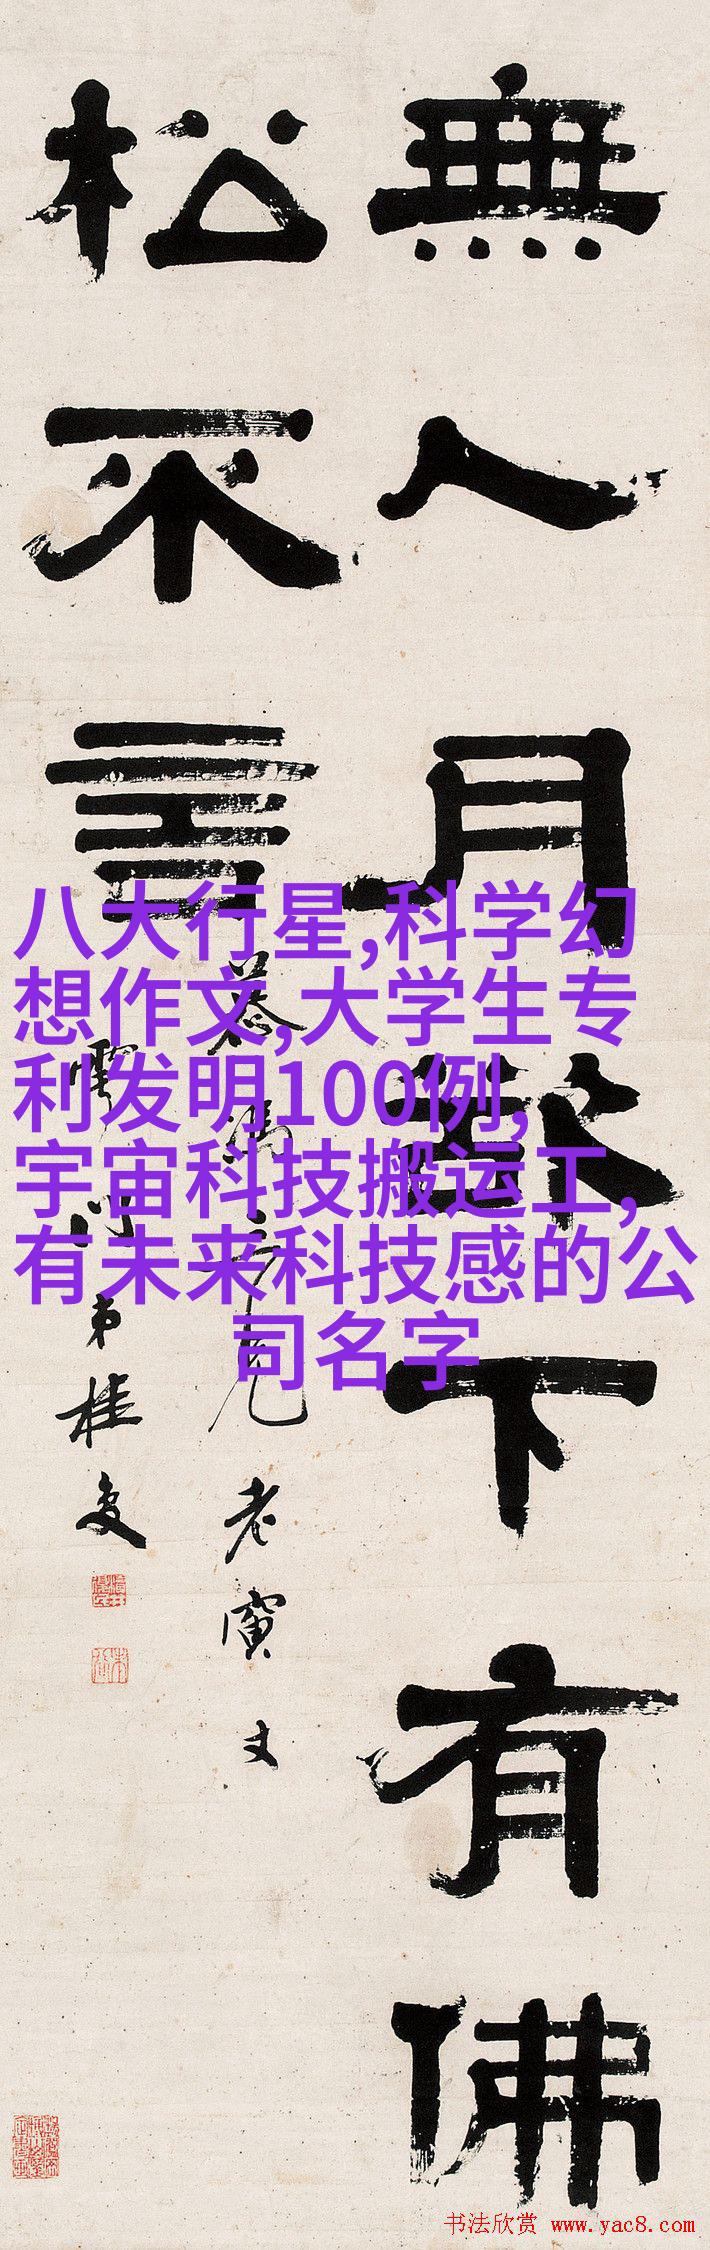 無人月下有佛
松不言
老寅丈
弟桂
八大行星,科学幻
想作文,大学生专
利发明100例,
宇宙科技搬运工,
有未来科技感的公
司名字
书法欣赏 www.yac8.com